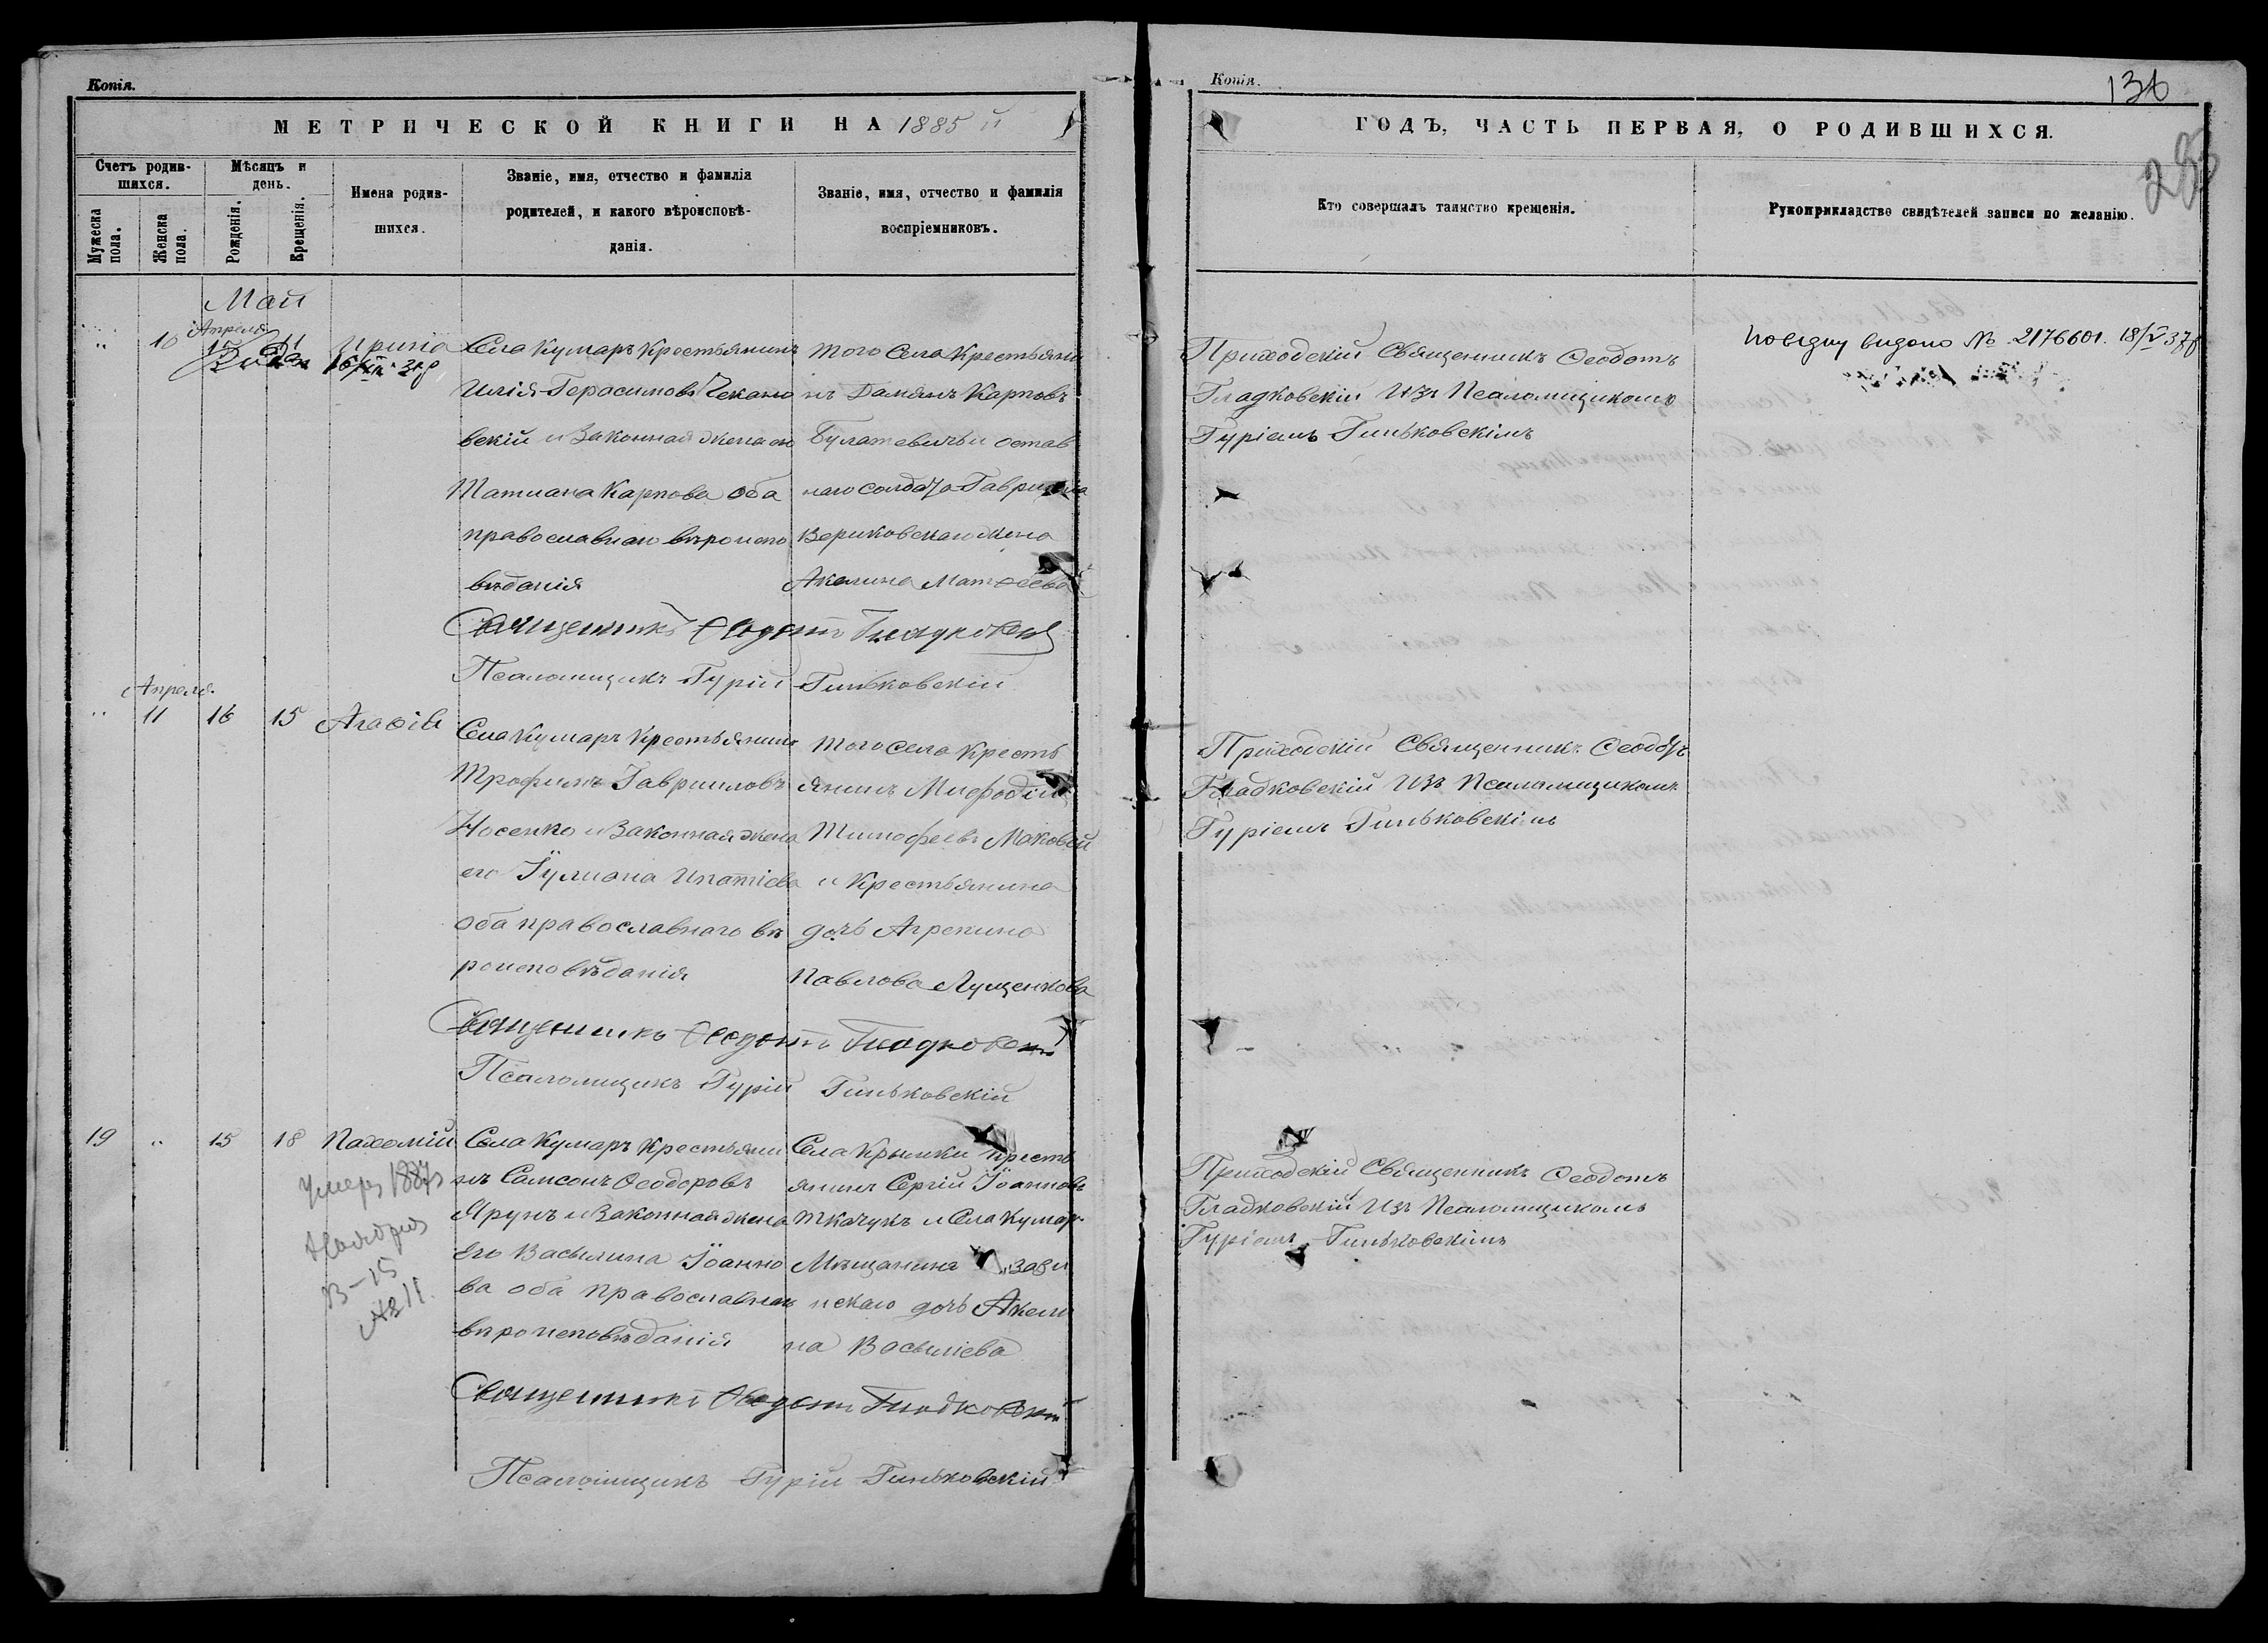 Копія.
МЕТРИЧЕСКОЙ КНИГИ НА 1885 й
Счетъ родив-
шихся.
Мѣсяцъ и
день.
Мужеска
пола.
Женска
пола.
Рожденія.
Крещенія.
Имена родив-
шихся.
Званіе, имя, отчество и фамилія
родителей, и какого вѣроисповѣ-
данія.
Званіе, имя, отчество и фамилія
воспріемниковъ.
Май
Апреля
" 10 Ирина
Села Кумаръ Крестьянинъ
Илія Герасимовъ Чекано
вскій и Законная жена его
Татиана Карпова оба
православнаго вѣроиспо
вѣданія
того Села Крестьяни
нъ Дамянъ Карповъ
солдата Гавриила
жена
Акелина Матфеева
Священникъ Феодотъ Гладковскій
Псаломщикъ Гурій Гиньковскій
Апреля
" 11 16 15 Агафія
Села Кумаръ Крестьянинъ
Трофимъ Гавриловъ
Носенко и Законная жена
его Іулиана Ипатіева
оба православнаго вѣ
роисповѣданія
того Села Кресть
янинъ Мифодій
Тимофеевъ Маковей
и Крестьянина
дочь Агрепина
Павлова Лущенкова
Священникъ Феодотъ Гладковскій
Псаломщикъ Гурій Гиньковскій
19 " 15 18 Пахомій
Умер 1887
Села Кумаръ Крестьяни
нъ Самсонъ Феодоровъ
Ярунъ и Законная жена
Его Васылина Іоанно
ва оба православнаго
вѣроисповѣданія
Села Крынки Кресть
янинъ Сергій Іоанновъ
Ткачукъ и Села Кумар.
Мѣщанина
дочь Акели
на Васыліева
Священникъ Феодотъ Гладковскій
Псаломщикъ Гурій Гиньковскій
Копія.
136
ГОДЪ, ЧАСТЬ ПЕРВАЯ, О РОДИВШИХСЯ.
Кто совершалъ таинство крещенія.
Рукоприкладство свидѣтелей записи по желанію.
Приходскій Священникъ Феодотъ
Гладковскій Изъ Псаломщикомъ
Гуріемъ Гиньковскімъ
видано № 2176601. 18/V 37
Приходскій Священникъ Феодотъ
Гладковскій Изъ Псаломщикомъ
Гуріемъ Гиньковскімъ
Приходскій Священникъ Феодотъ
Гладковскій Изъ Псаломщикомъ
Гуріемъ Гиньковскімъ